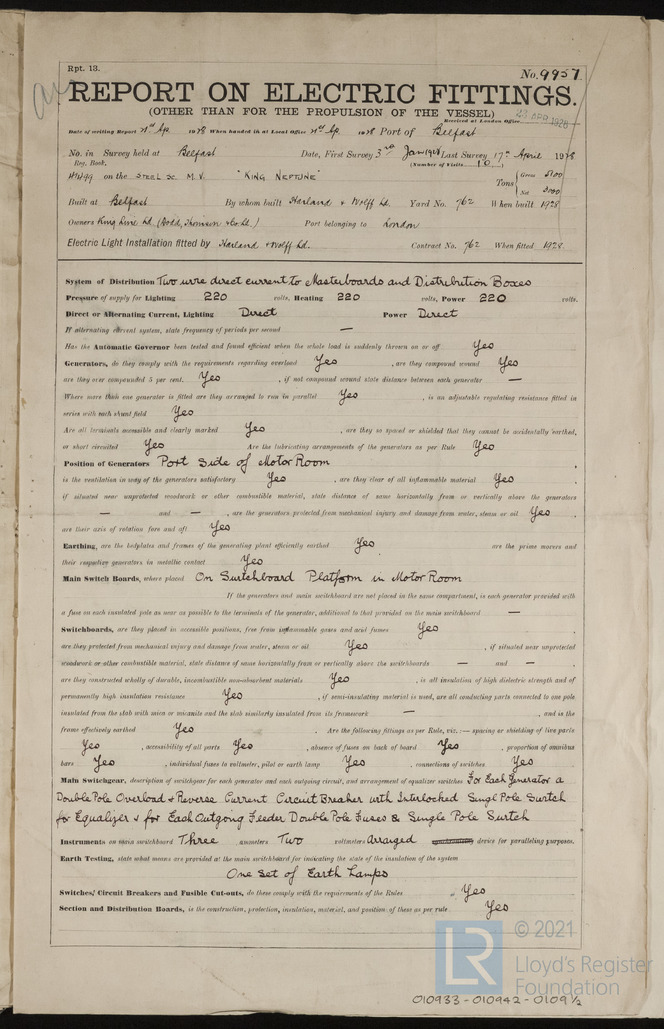 Rpt. 13.
No. 9957
REPORT ON ELECTRIC FITTINGS.
(OTHER THAN FOR THE PROPULSION OF THE VESSEL)
Received at London Office 23 APR 1928
Date of writing Report Ap. 1928 When handed in at Local Office Ap. 1928 Port of Belfast
No. in Survey held at Belfast Date, First Survey 3rd Jan 1928 Last Survey 17th April 1928
Reg. Book. (Number of Visits 10)
on the STEEL SC M.V. "KING NEPTUNE" Tons { Gross Net
Built at Belfast By whom built Harland & Wolff Ld. Yard No. 762 When built 1928
Owners King Line Ld. (Dodd, Thomson & Co. Ld.) Port belonging to London
Electric Light Installation fitted by Harland & Wolff Ld. Contract No. 762 When fitted 1928
System of Distribution Two wire direct current to Masterboards and Distribution Boxes
Pressure of supply for Lighting 220 volts, Heating 220 volts, Power 220 volts.
Direct or Alternating Current, Lighting Direct Power Direct
If alternating current system, state frequency of periods per second —
Has the Automatic Governor been tested and found efficient when the whole load is suddenly thrown on or off Yes
Generators, do they comply with the requirements regarding overload Yes , are they compound wound Yes
are they over compounded 5 per cent. Yes , if not compound wound state distance between each generator —
Where more than one generator is fitted are they arranged to run in parallel Yes , is an adjustable regulating resistance fitted in
series with each shunt field Yes
Are all terminals accessible and clearly marked Yes , are they so spaced or shielded that they cannot be accidentally earthed,
or short circuited Yes Are the lubricating arrangements of the generators as per Rule Yes
Position of Generators Port Side of Motor Room
is the ventilation in way of the generators satisfactory Yes , are they clear of all inflammable material Yes ,
if situated near unprotected woodwork or other combustible material, state distance of same horizontally from or vertically above the generators
— and — , are the generators protected from mechanical injury and damage from water, steam or oil Yes ,
are their axis of rotation fore and aft Yes
Earthing, are the bedplates and frames of the generating plant efficiently earthed Yes are the prime movers and
their respective generators in metallic contact Yes
Main Switch Boards, where placed On Switchboard Platform in Motor Room
If the generators and main switchboard are not placed in the same compartment, is each generator provided with
a fuse on each insulated pole as near as possible to the terminals of the generator, additional to that provided on the main switchboard —
Switchboards, are they placed in accessible positions, free from inflammable gases and acid fumes Yes
are they protected from mechanical injury and damage from water, steam or oil Yes , if situated near unprotected
woodwork or other combustible material, state distance of same horizontally from or vertically above the switchboards — and — ,
are they constructed wholly of durable, incombustible non-absorbent materials Yes , is all insulation of high dielectric strength and of
permanently high insulation resistance Yes , if semi-insulating material is used, are all conducting parts connected to one pole
insulated from the slab with mica or micanite and the slab similarly insulated from its framework — , and is the
frame effectively earthed Yes . Are the following fittings as per Rule, viz.:— spacing or shielding of live parts
Yes , accessibility of all parts Yes , absence of fuses on back of board Yes , proportion of omnibus
bars Yes , individual fuses to voltmeter, pilot or earth lamp Yes , connections of switches Yes
Main Switchgear, description of switchgear for each generator and each outgoing circuit, and arrangement of equalizer switches For Each Generator a
Double Pole Overload & Reverse Current Circuit Breaker with Interlocked Singl Pole Switch
for Equalizer & for Each Outgoing Feeder Double Pole Fuses & Single Pole Switch
Instruments on main switchboard Three ammeters Two voltmeters Arranged device for paralleling purposes.
Earth Testing, state what means are provided at the main switchboard for indicating the state of the insulation of the system
One Set of Earth Lamps
Switches, Circuit Breakers and Fusible Cut-outs, do these comply with the requirements of the Rules Yes
Section and Distribution Boards, is the construction, protection, insulation, material, and position of these as per rule Yes
LR © 2021
Lloyd's Register
Foundation
010933-010942-0109½